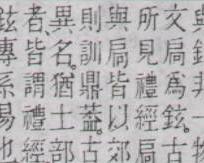 與鉉非一物
文扃爲鉉。古
所見禮經扃
與扃皆以郊
則訓鼎葢。古
異名。猶士部
者、皆謂禮經
鉉傳系易也